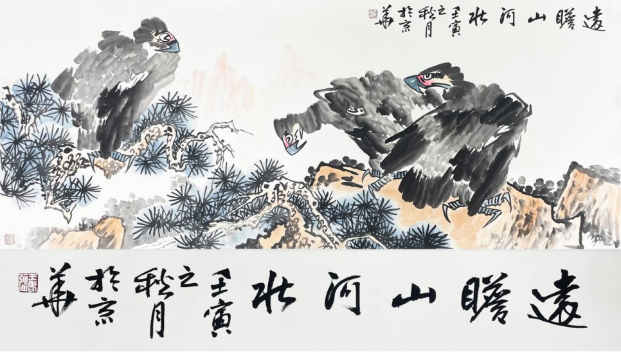 遠瞻山河壯
壬寅
之秋月
於京
華
遠瞻山河壯
壬寅
之秋月
於京
華